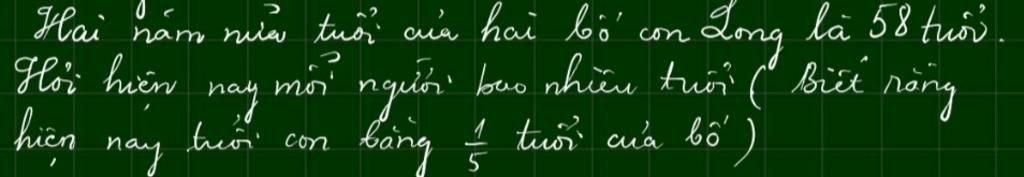 Hai năm nữa tuổi của hai bố con Long là 58 tuổi.
Hỏi hiện nay mỗi người bao nhiêu tuổi ( Biết rằng
hiện nay tuổi con bằng 1/5 tuổi của bố )